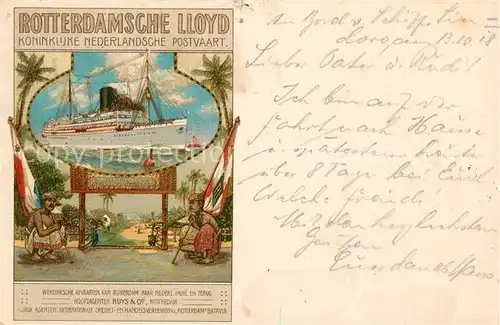 ROTTERDAMSCHE LLOYD
KONINKLIJKE NEDERLANDSCHE POSTVAART.
WEKELIJKSCHE AFVAARTEN VAN ROTTERDAM NAAR NEDERL. INDIË EN TERUG
HOOFDAGENTEN RUYS & Co., ROTTERDAM
JAVA AGENTEN: INTERNATIONALE CREDIET- EN HANDELSVEREENIGING „ROTTERDAM" BATAVIA
An Bord v. Schiff Sin
doro, am 13.10.18
Liebe Vater u. Rudi!
Ich bin auf der
Fahrt nach Hause
u. spätestens heute
über 8 Tage bei Euch.
Welche Freude!
Mit den herzlichsten
Grüßen
Euer